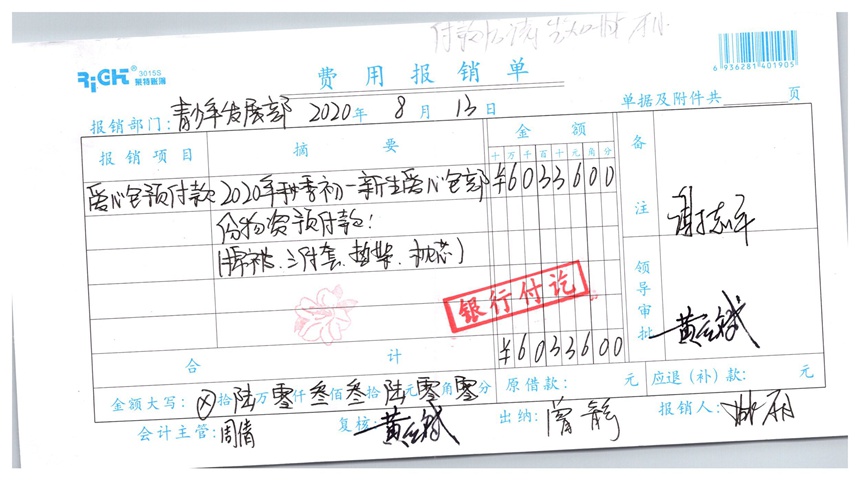 RiGHT® 3015S
莱特账簿
费用报销单
6 936281 401905
报销部门:青少年发展部 2020年 8月 13日 单据及附件共 页
报销项目 摘要 金额 备注
十万千百十元角分
爱心包预付款 2020年秋季初一新生爱心包部 ¥6033600
份物资预付款:
(棉被、三件套、垫絮、枕芯)
谢志平
银行付讫
领导审批
合计 ¥6033600
金额大写:⊗拾陆万零仟叁佰叁拾陆元零角零分 原借款: 元 应退(补)款: 元
会计主管:周倩 复核: 出纳:曾 报销人: